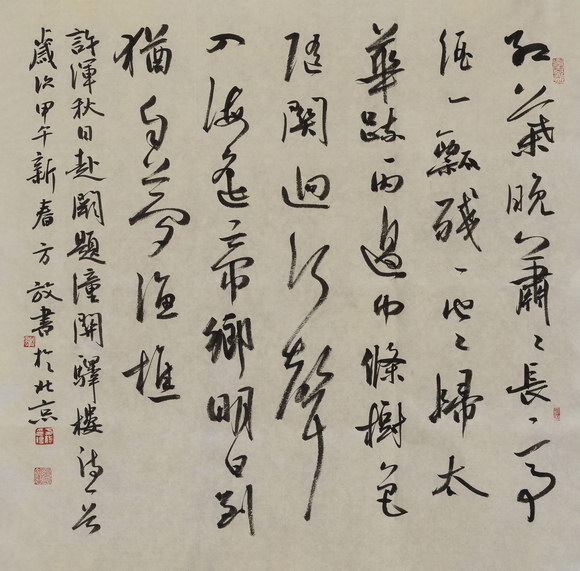 紅葉晚蕭〻長亭
酒一瓢殘雲歸太
華疎雨過中條樹色
隨關迥河聲
入海遥帝鄉明日到
猶自夢漁樵
許渾秋日赴闕題潼關驛樓詩一首
歲次甲午新春方放書於北京